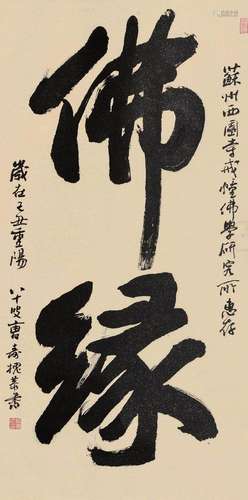 蘇州西園寺戒幢佛學研究所惠存
佛緣
歲在己丑重陽
八十叟曹壽槐恭書